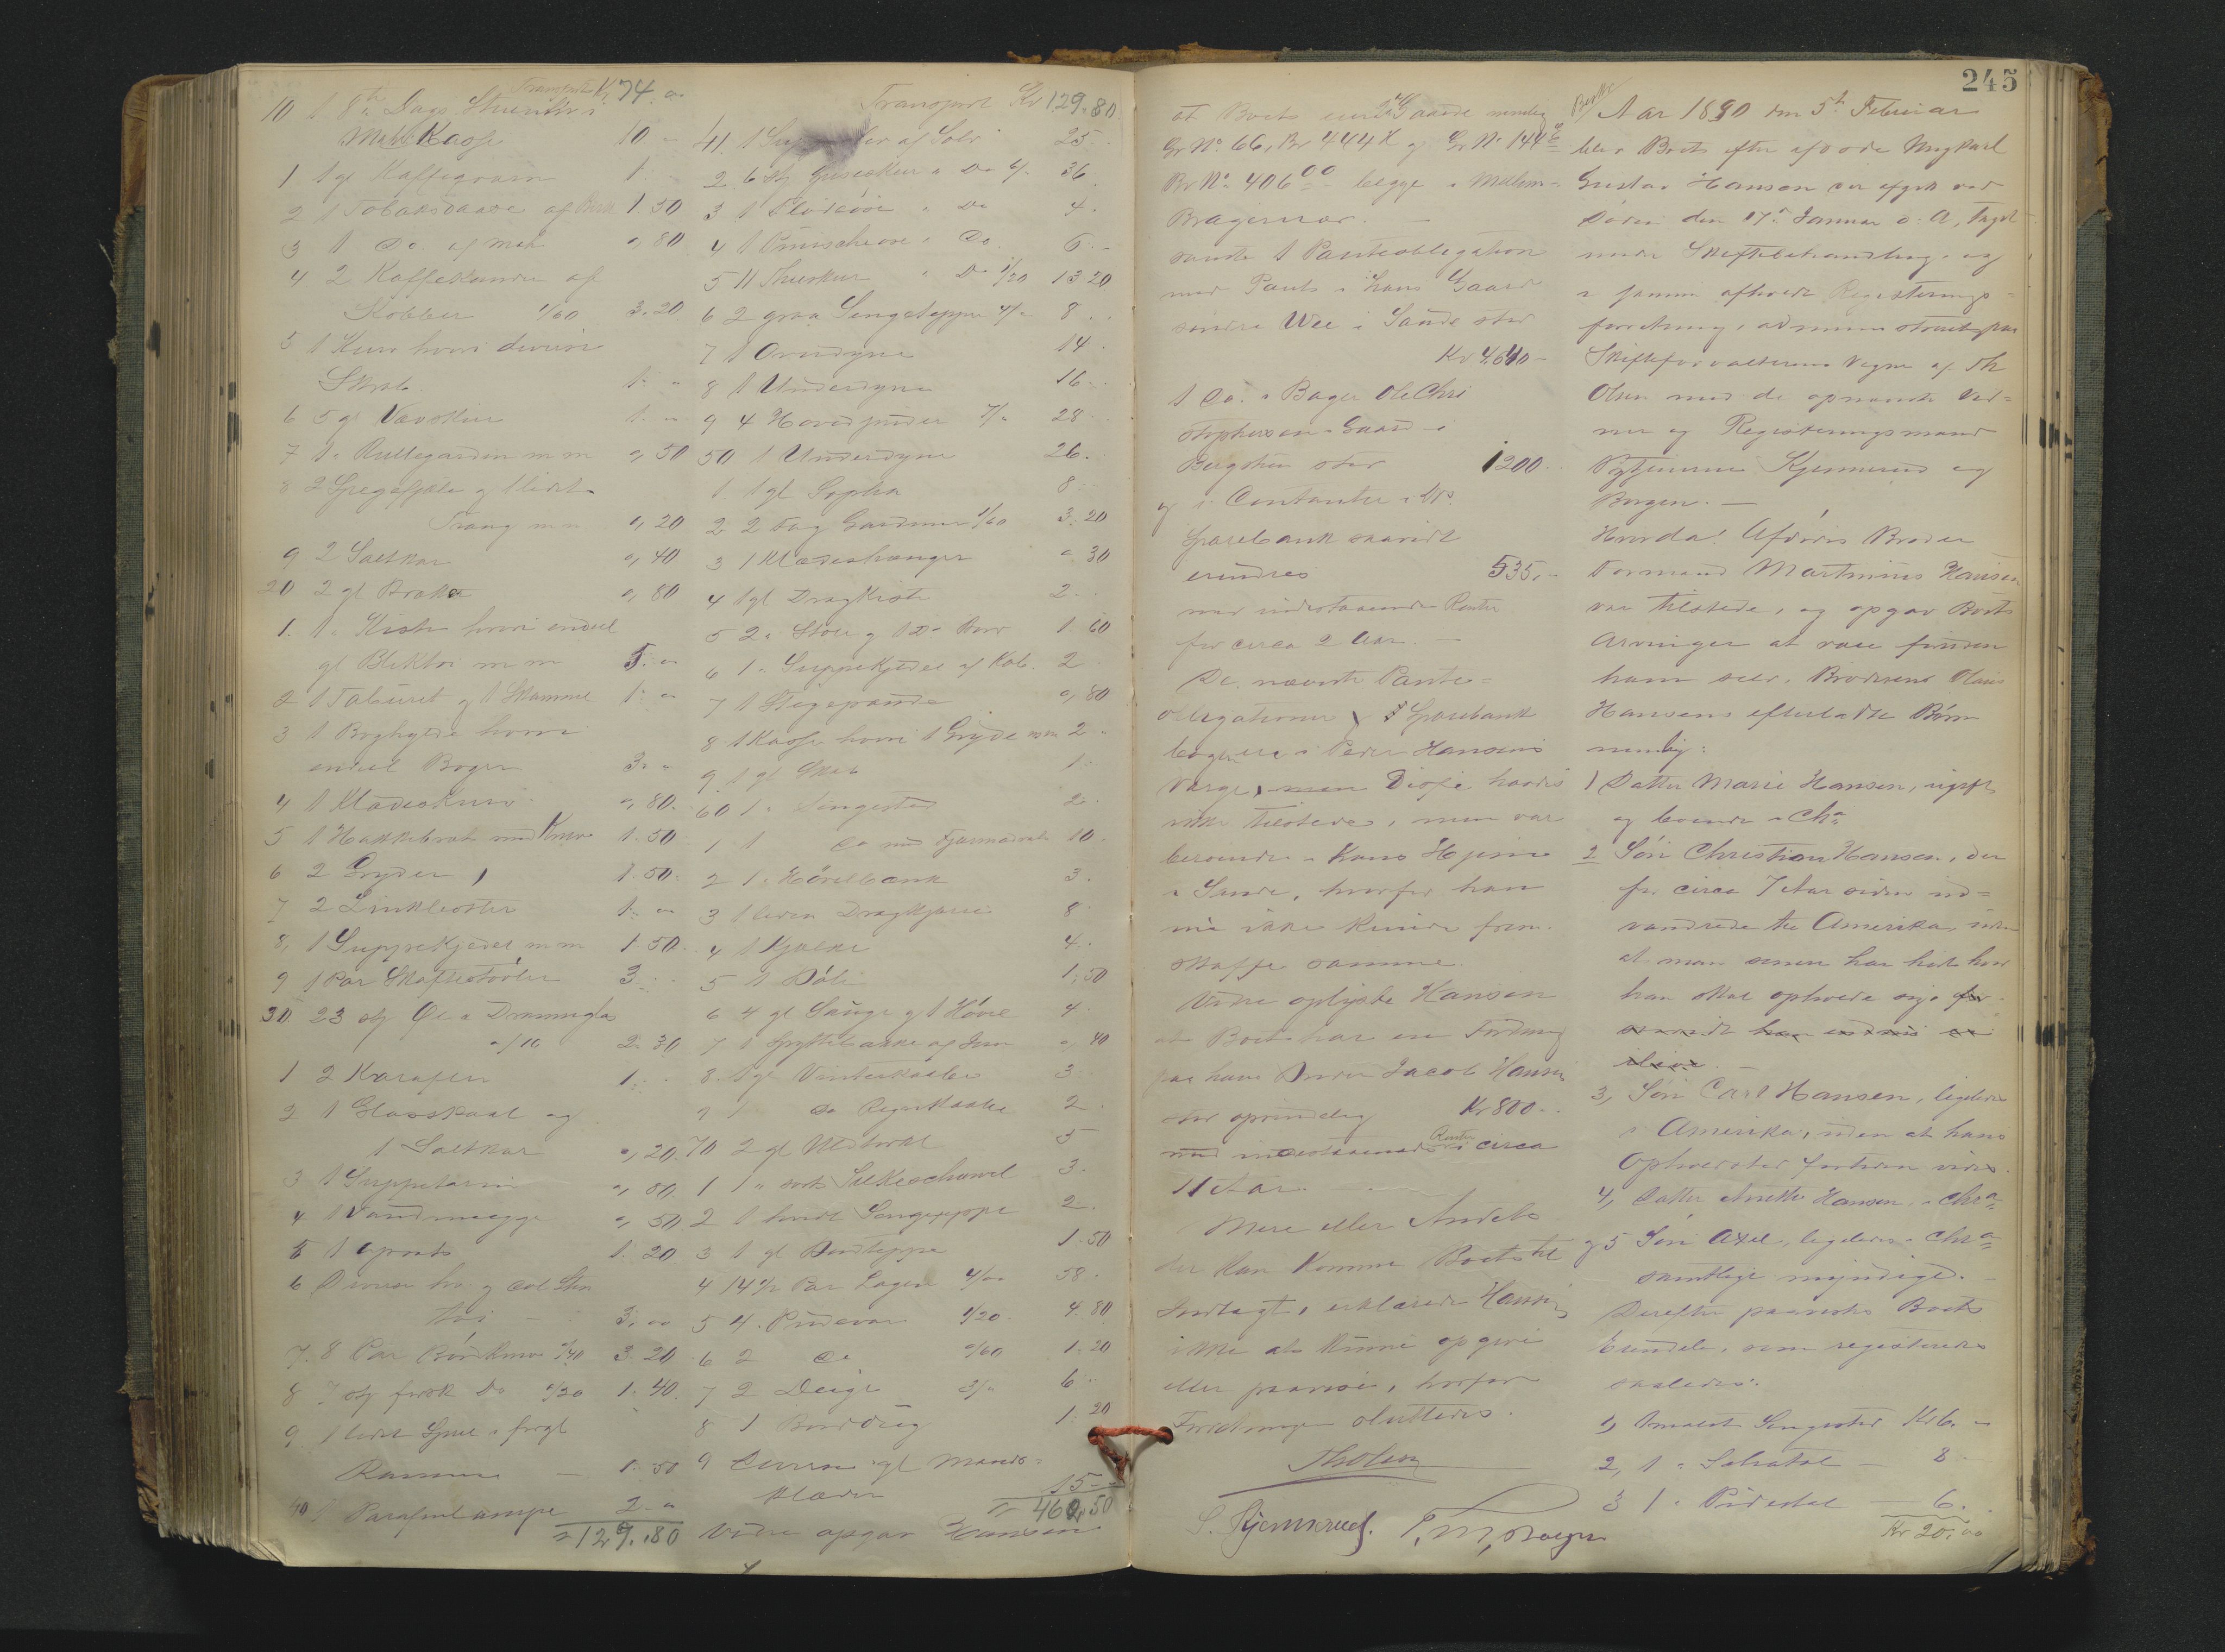 Transport Kr 74. "
10 1 8te Dags Stueuhr i
Kasse 10 "
1 1 gl Kaffegryn 1. "
2 1 Tobaksdaase af 1 50
3 1 Do. af Meh ", 80
4 2 Kaffekander af
Kobber 1/60 3. 20
5 1 Kurv hvori diverse
Skrab 1. "
6 5 gl 1. "
7 1 " Rullegardin m m ", 50
8 2 og 1 lidet
Traug m m ", 20
9 2 Saltkar ", 40
20 2 gl ", 80
1. 1 " Kiste hvori endeel
gl Bliktøi m m 5. "
2 1 Taburet og 1 Skammel 1. "
3 1 Boghylde hvori
endeel Bøger 3. "
4 1 Klædeskurv ", 80.
5 1 Hakkebræt med Kniv 1. 50
6 2 Gryder 1. 50.
7 2 1. "
8, 1 Suppekjedel m m 1. 50.
9 1 Par Skaftestøvler 3
30. 23 stk Øl & Dramglas
a/10 2. 30
1 2 Karafler 1.
2 1 Glasskaal og
1 Saltkar ", 20.
3 1 Suppeterrin ", 80
4 1 Vandmugge ", 50
5 1 1. 20
6 Diverse hv og col Sten
tøi - 3. "
7. 8 Par Bordknive "/40 3. 20
8 7 stk Do "/20 1. 40.
9 1 lidet Speil i forgl
Ramme 1. 50
40 1 Parafinlampe 2. "
" 129. 80
Transport Kr 129. 80
41. 1 af Sølv 25.
2 6 stk Spiseskeer " Do 6/" 36
3 1 Fløteskee " Do 4.
4 1 " Do. 6. -
5 11 Theskeer " Do 1/20 13 20
6 2 graa Sengetepper 4/" 8.
7 1 Overdyne 14.
8 1 Underdyne 16.
9 4 Hovedpuder 7/" 28
50 1 Underdyne 26.
1. 1 gl Sopha 8
2 2 Fag Gardiner 1/60 3. 20
3 1 Klædeshænger ". 30
4 1 gl Dragkiste 2
5 2 " Stole og 1 Do Bord 1. 60
6 1 " Suppekjedel af Kob. 2
7 1 Stegepande ", 80
8 1 Kasse hvori 1 Gryde m m 2 "
9. 1 gl Skab 1
60 1 " Sengested 2.
1 1 Do med Fjærmadrats 10.
2 1 " Høvelbænk 3.
3 1 liden Dragkjærre 8
4 1 Kjælke 4.
5 1 1, 50
6 4 gl Sauge og 1 Høvel 4
7 1 Spyttebakke af Jern ", 40
8. 1 gl Vinterkaabe 3
9 1 Do Regnkaabe 2.
70 2 gl 5
1 1 " sort Silkeschawl 3.
2 1 hvidt Sengeteppe 2.
3 1 gl Bordteppe 1. 50
4 14 1/2 Par Lagen 4/00 58.
5 4. Pudevar 1/20. 4. 80
6 2 Do "/60 1. 20
7 2 Deige 3/" 6
8 1 Borddug 1. 20
9 Diverse gl Mands-
klæder 15 -
" 460, 50
Videre opgav Hansen
at Boets eiede 2de Gaarde nemlig
Gr No. 66, Br 444 og Gr No. 144
Br No. 406 begge i Mellem-
Bragernæs. -
samt 1 Panteobligation
med Pant i Hans Gaard
søndre Wee i Sande stor
Kr 4640 -
1 Do. i Bager Ole Chri
stophersens Gaard i
Bergsten stor 1200.
og i Contanter i Drs
Sparebank saavidt
erindres 535. -
med indestaaende Renter
for circa 2 Aar. -
De nævnte Pante-
obligationer & Sparebank
bøger ere i Peder Hansens
Værge, men Disse havdes
ikke tilstede, men var
beroende i Hans Hjem
i Sande, hvorfor han
nu ikke kunde frem-
skaffe samme.
Videre oplyste Hansen
at Boet har en Fordring
paa hans Broder Jacob Hansen
stor oprindelig Kr 800. -
med indestaaende Renter i circa
11 Aar. -
Mere eller Andet
der kan komme Boet til
Indtægt, erklærede Hansen
ikke at kunne opgive
eller paavise, hvorfor
Forretningen sluttedes.
Th Olsen
S. Kjennerud. T. M. Borgen
245
Aar 1890 den 5te Februar
blev Boet efter afdøde Ungkarl
Gustav Hansen der afgik ved
Døden den 17de Januar d. A, taget
under Skiftebehandling, og
i samme afholdt Registrerings-
forretning, administreret paa
Skifteforvalterens Vegne af Th
Olsen med de opnævnte Vid-
ner og Registreringsmænd
Kjennerud og
Borgen. -
Hvorda! Afdødes Broder
Formand Martinius Hansen
var tilstede, og opgav Boets
Arvinger at være foruden
ham selv, Broderens Hans
Hansens efterladte Børn
nemlig:
1 Datter Marie Hansen, ugift
og boende i Chra
2 Søn Christian Hansen, der
for circa 7 Aar siden ud-
vandrede til Amerika, uden
at man senere har hørt hvor
han skal opholde sig
3, Søn Carl Hansen, ligeledes
i Amerika, uden at hans
Opholdsted fortiden vides.
4, Datter Anette Hansen, i Chra
og 5 Søn Axel, ligeledes i Chra
samtlige myndige. -
Derefter paavistes Boets
Eiendele, som registreredes
saaledes:
1, 1 malet Sengested Kr 6. "
2, 1 " Schatol - 8
3 1 " Pidestal - 6.
Kr 20. "